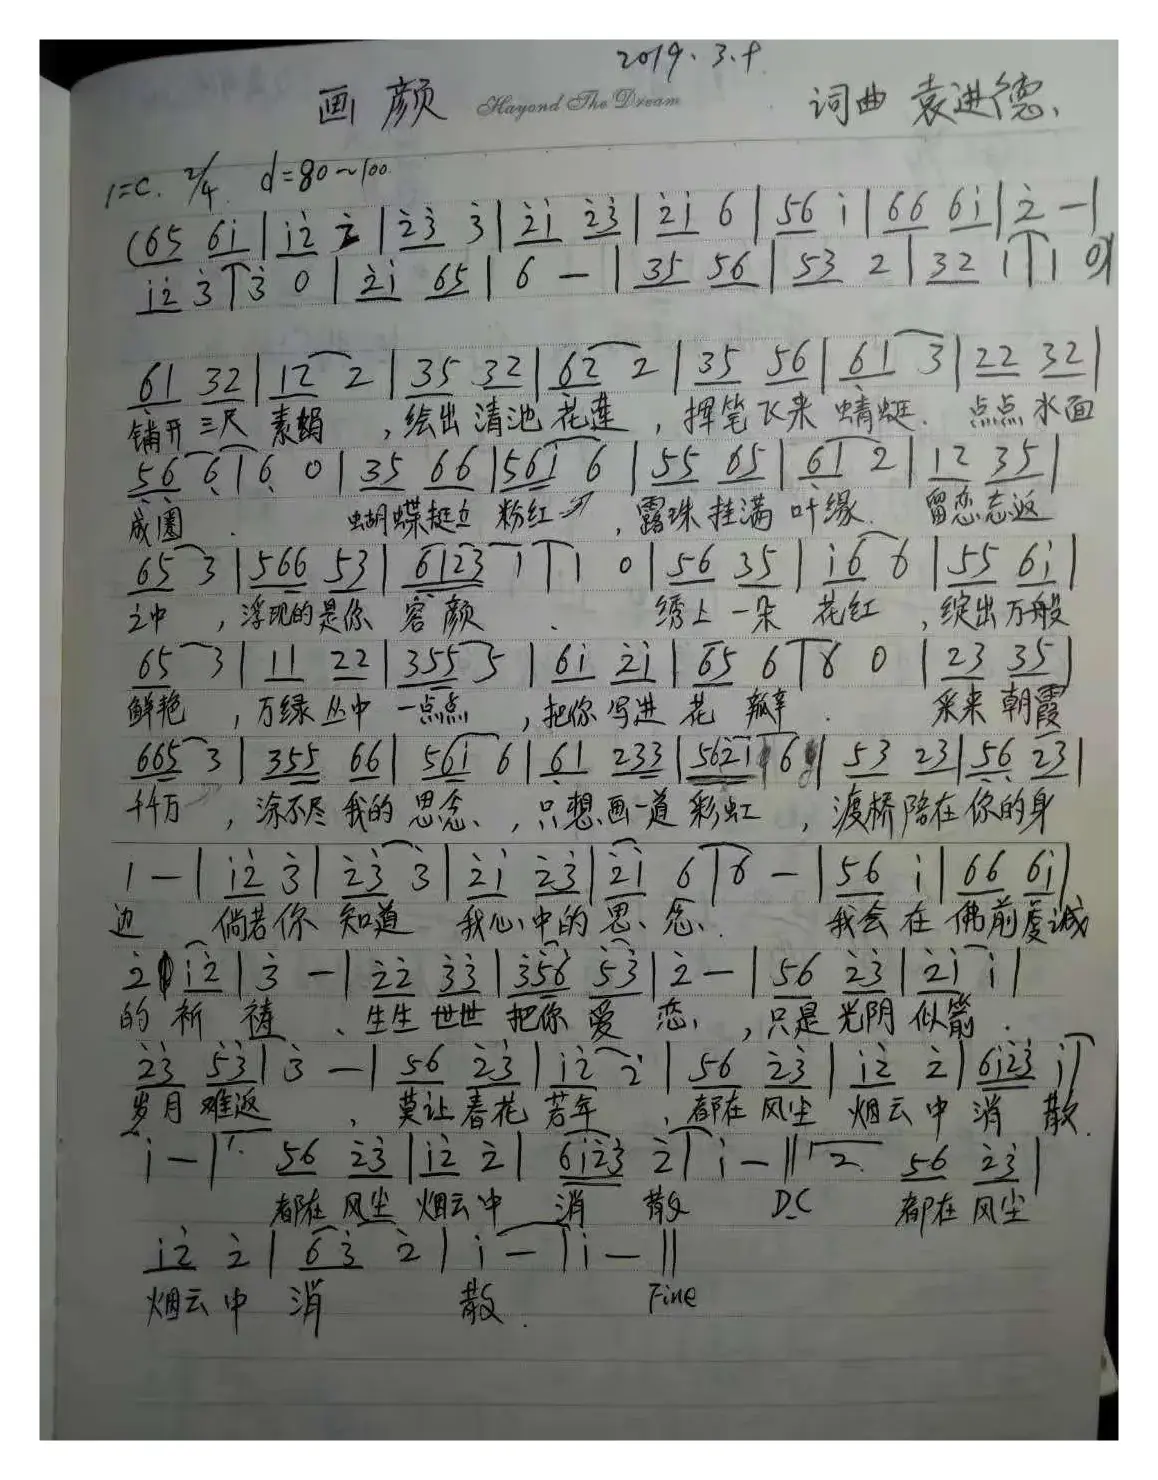 2019.3.9.
画颜 Hayond The Dream 词曲 袁进德、
1=C. 2/4 d=80~100
(65 6i|i2̇ 2̇|2̇3̇ 3̇|2̇i 2̇3̇|2̇i 6|56 i|66 6i|2̇ -|
i2̇ 3̇|3̇ 0|2̇i 65|6 -|35 56|53 2|32 1|1 0)|
61 32|12 2|35 32|62 2|35 56|61 3|22 32|
铺开三尺 素绢 ,绘出清池 花莲 , 挥笔飞来 蜻蜓. 点点水面
56 6|6 0|35 66|56i 6|55 65|61 2|12 35|
成圈. 蝴蝶挺立 粉红 ,露珠挂满 叶缘. 留恋忘返
65 3|566 53|6123 1|1 0|56 35|i6 6|55 6i|
之中 ,浮现的是你 容颜 . 绣上一朵 花红 ,绽出万般
65 3|11 22|355 5|6i 2̇i|65 6|6 0|23 35|
鲜艳 ,万绿丛中 一点点 ,把你写进 花瓣. 采来朝霞
665 3|355 66|56i 6|61 233|562̇i 6|53 23|56 23|
千千万 ,涂不尽我的 思念、,只想画一道 彩虹 ,渡桥陪在你的身
1 -|i2̇ 3̇|2̇3̇ 3̇|2̇i 2̇3̇|2̇i 6|6 -|56 i|66 6i|
边 倘若你 知道 我心中的 思念. 我会在 佛前虔诚
2̇ i2̇|3̇ -|2̇2̇ 3̇3̇|3̇56 53̇|2̇ -|56 2̇3̇|2̇i i|
的祈祷 、生生世世 把你爱恋、,只是光阴 似箭.
2̇3̇ 53̇|3̇ -|56 2̇3̇|i2̇ 2̇|56 2̇3̇|i2̇ 2̇|6i2̇3̇ i|
岁月难返 , 莫让春花 若年 ,都在风尘 烟云中 消散.
i -|1. 56 2̇3̇|i2̇ 2̇|6i2̇3̇ 2̇|i -‖2. 56 2̇3̇|
都在风尘 烟云中 消散 D.C 都在风尘
i2̇ 2̇|63̇ 2̇|i -|i -‖
烟云中 消 散. Fine